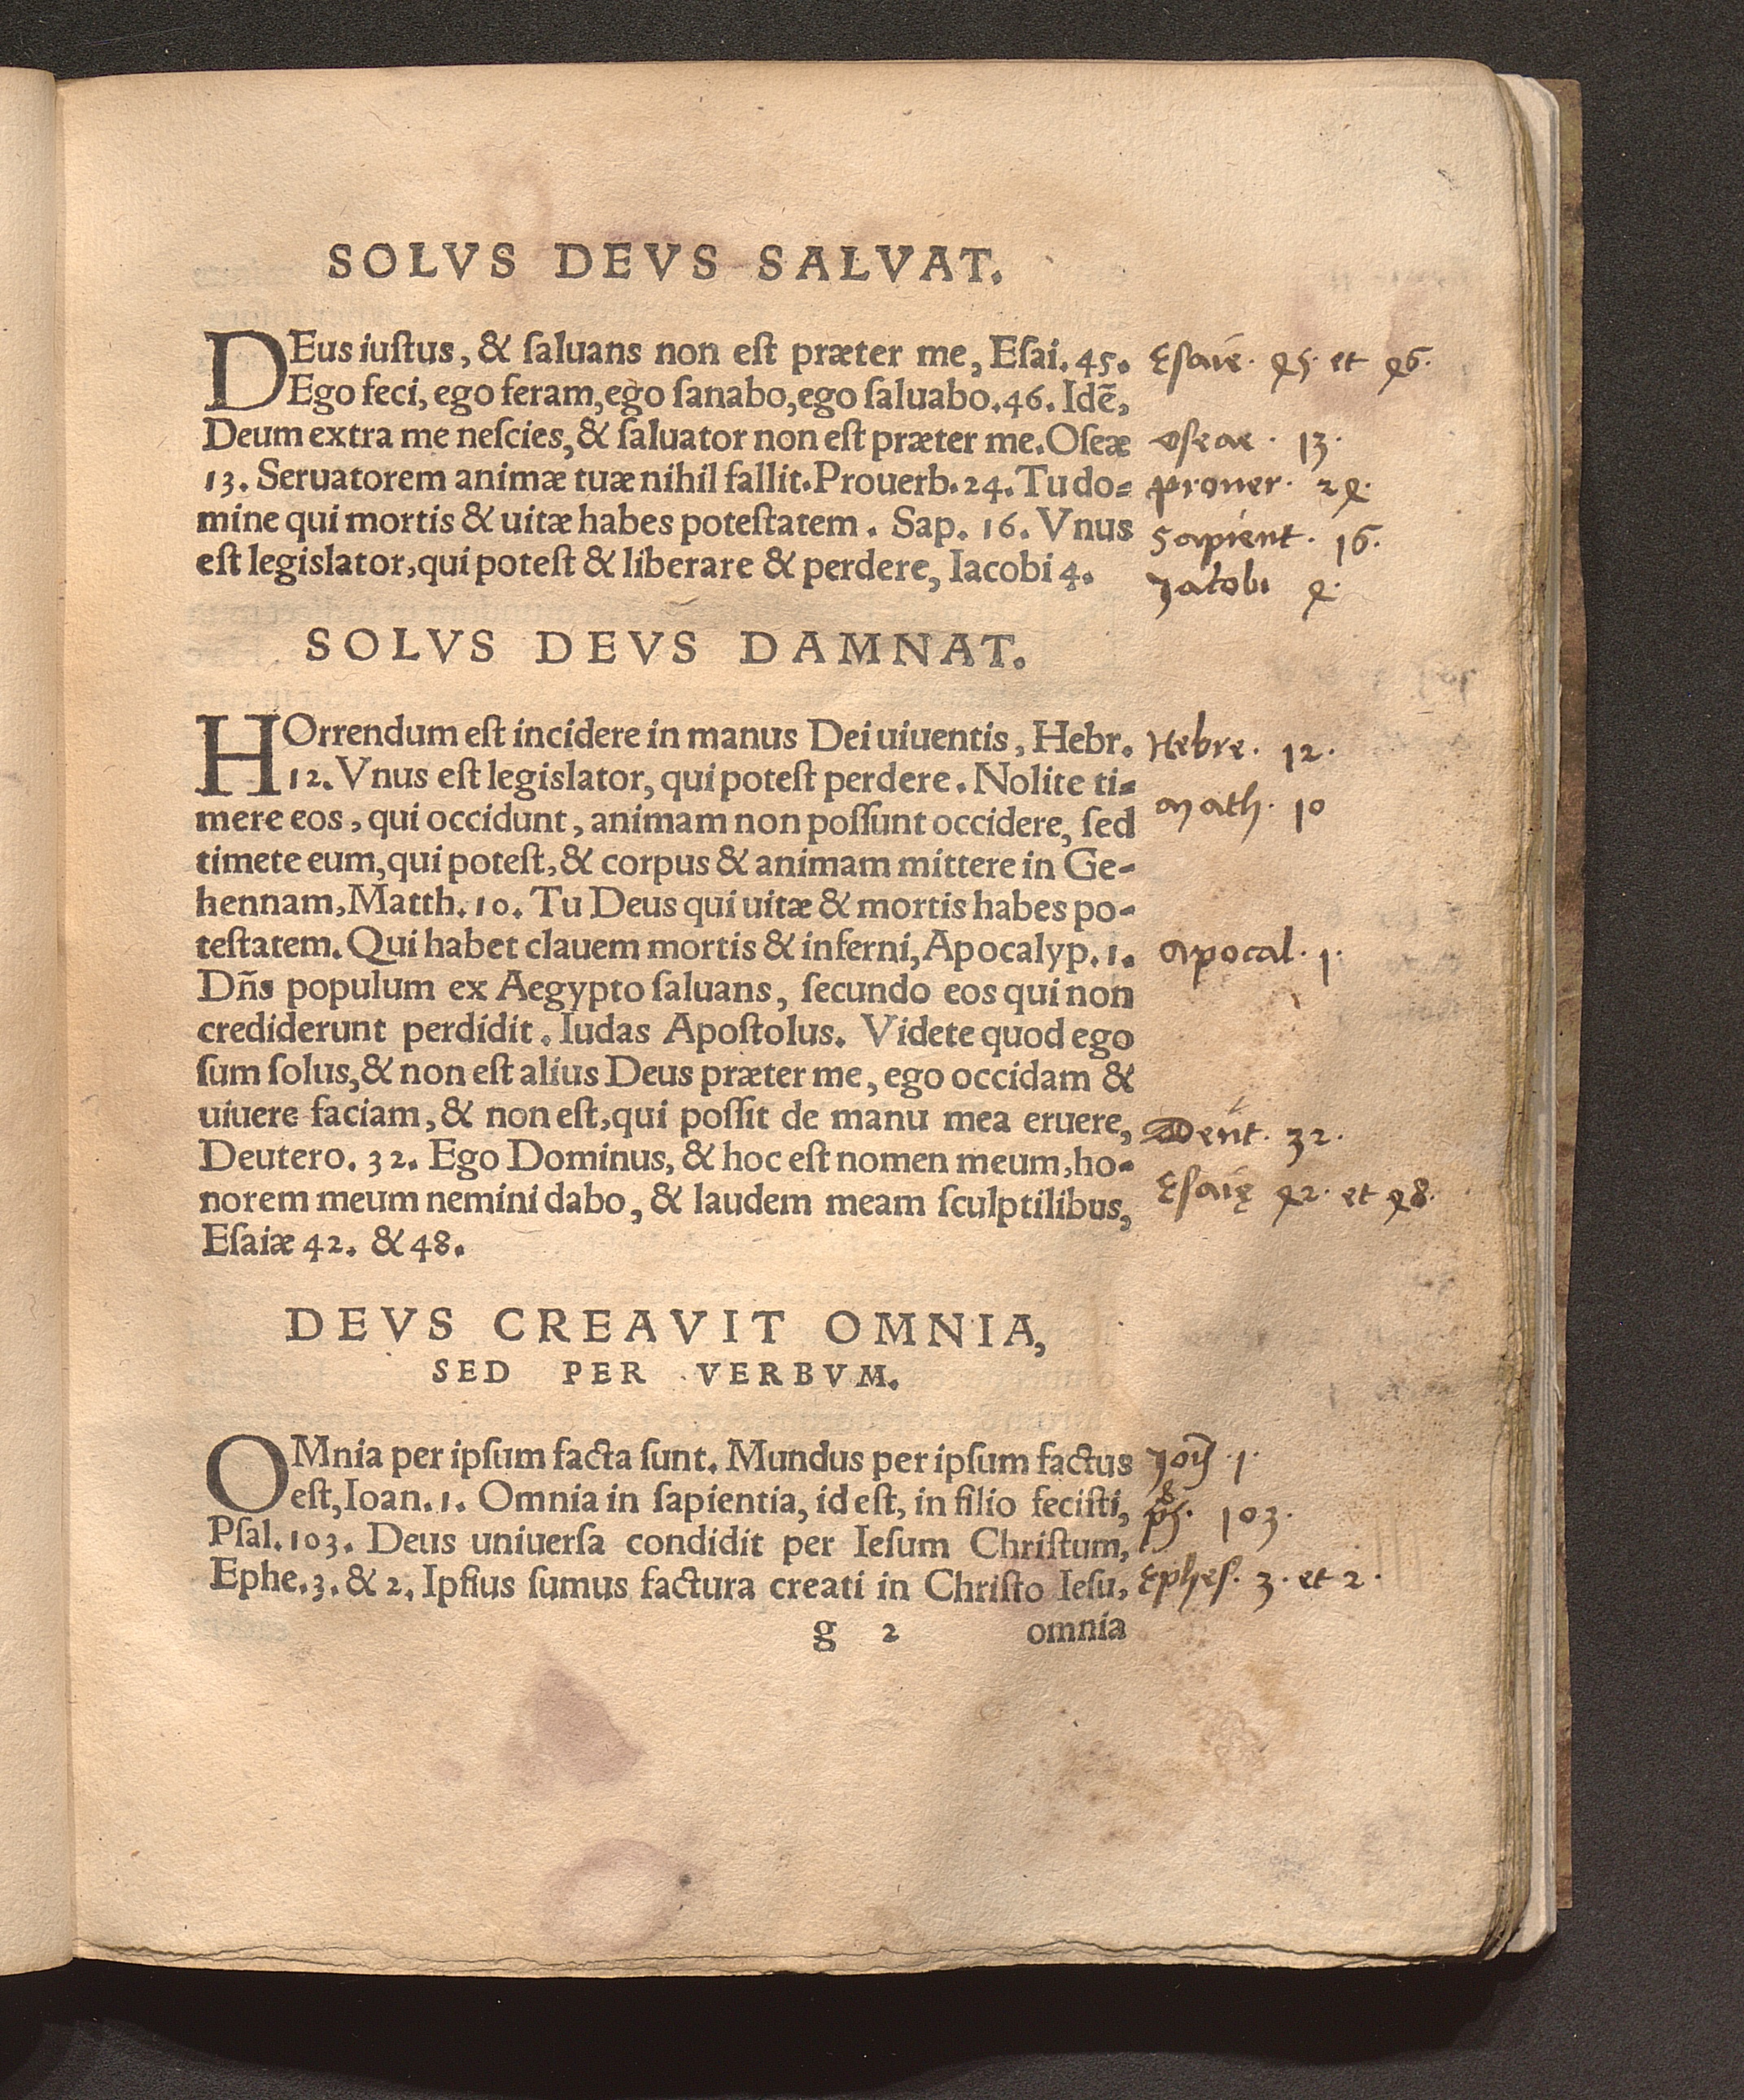 SOLVS DEVS SALVAT.
DEus iustus, & saluans non est præter me, Esai. 45.
Esaie. 45. et 46.
Ego feci, ego feram, ego sanabo, ego saluabo. 46. Idē,
Deum extra me nescies, & saluator non est præter me. Oseæ
oseae. 13.
13. Seruatorem animæ tuæ nihil fallit. Prouerb. 24. Tu do=
prouer. 24.
mine qui mortis & uitæ habes potestatem. Sap. 16. Vnus
Sapient. 16.
est legislator, qui potest & liberare & perdere, Iacobi 4.
Jacobi 4.
SOLVS DEVS DAMNAT.
HOrrendum est incidere in manus Dei uiuentis, Hebr.
Hebre. 12.
12. Vnus est legislator, qui potest perdere. Nolite ti=
math. 10
mere eos, qui occidunt, animam non possunt occidere, sed
timete eum, qui potest, & corpus & animam mittere in Ge-
hennam, Matth. 10. Tu Deus qui uitæ & mortis habes po-
testatem. Qui habet clauem mortis & inferni, Apocalyp. 1.
Apocal. 1.
Dñs populum ex Aegypto saluans, secundo eos qui non
crediderunt perdidit. Iudas Apostolus. Videte quod ego
sum solus, & non est alius Deus præter me, ego occidam &
uiuere faciam, & non est, qui possit de manu mea eruere,
Deut. 32.
Deutero. 32. Ego Dominus, & hoc est nomen meum, ho-
norem meum nemini dabo, & laudem meam sculptilibus,
Esaię 42. et 48.
Esaiæ 42. & 48.
DEVS CREAVIT OMNIA,
SED PER VERBVM.
OMnia per ipsum facta sunt. Mundus per ipsum factus
est, Ioan. 1. Omnia in sapientia, id est, in filio fecisti,
103.
Psal. 103. Deus uniuersa condidit per Iesum Christum,
Ephe. 3. & 2. Ipsius sumus factura creati in Christo Iesu,
Ephes. 3. et 2.
g 2 omnia